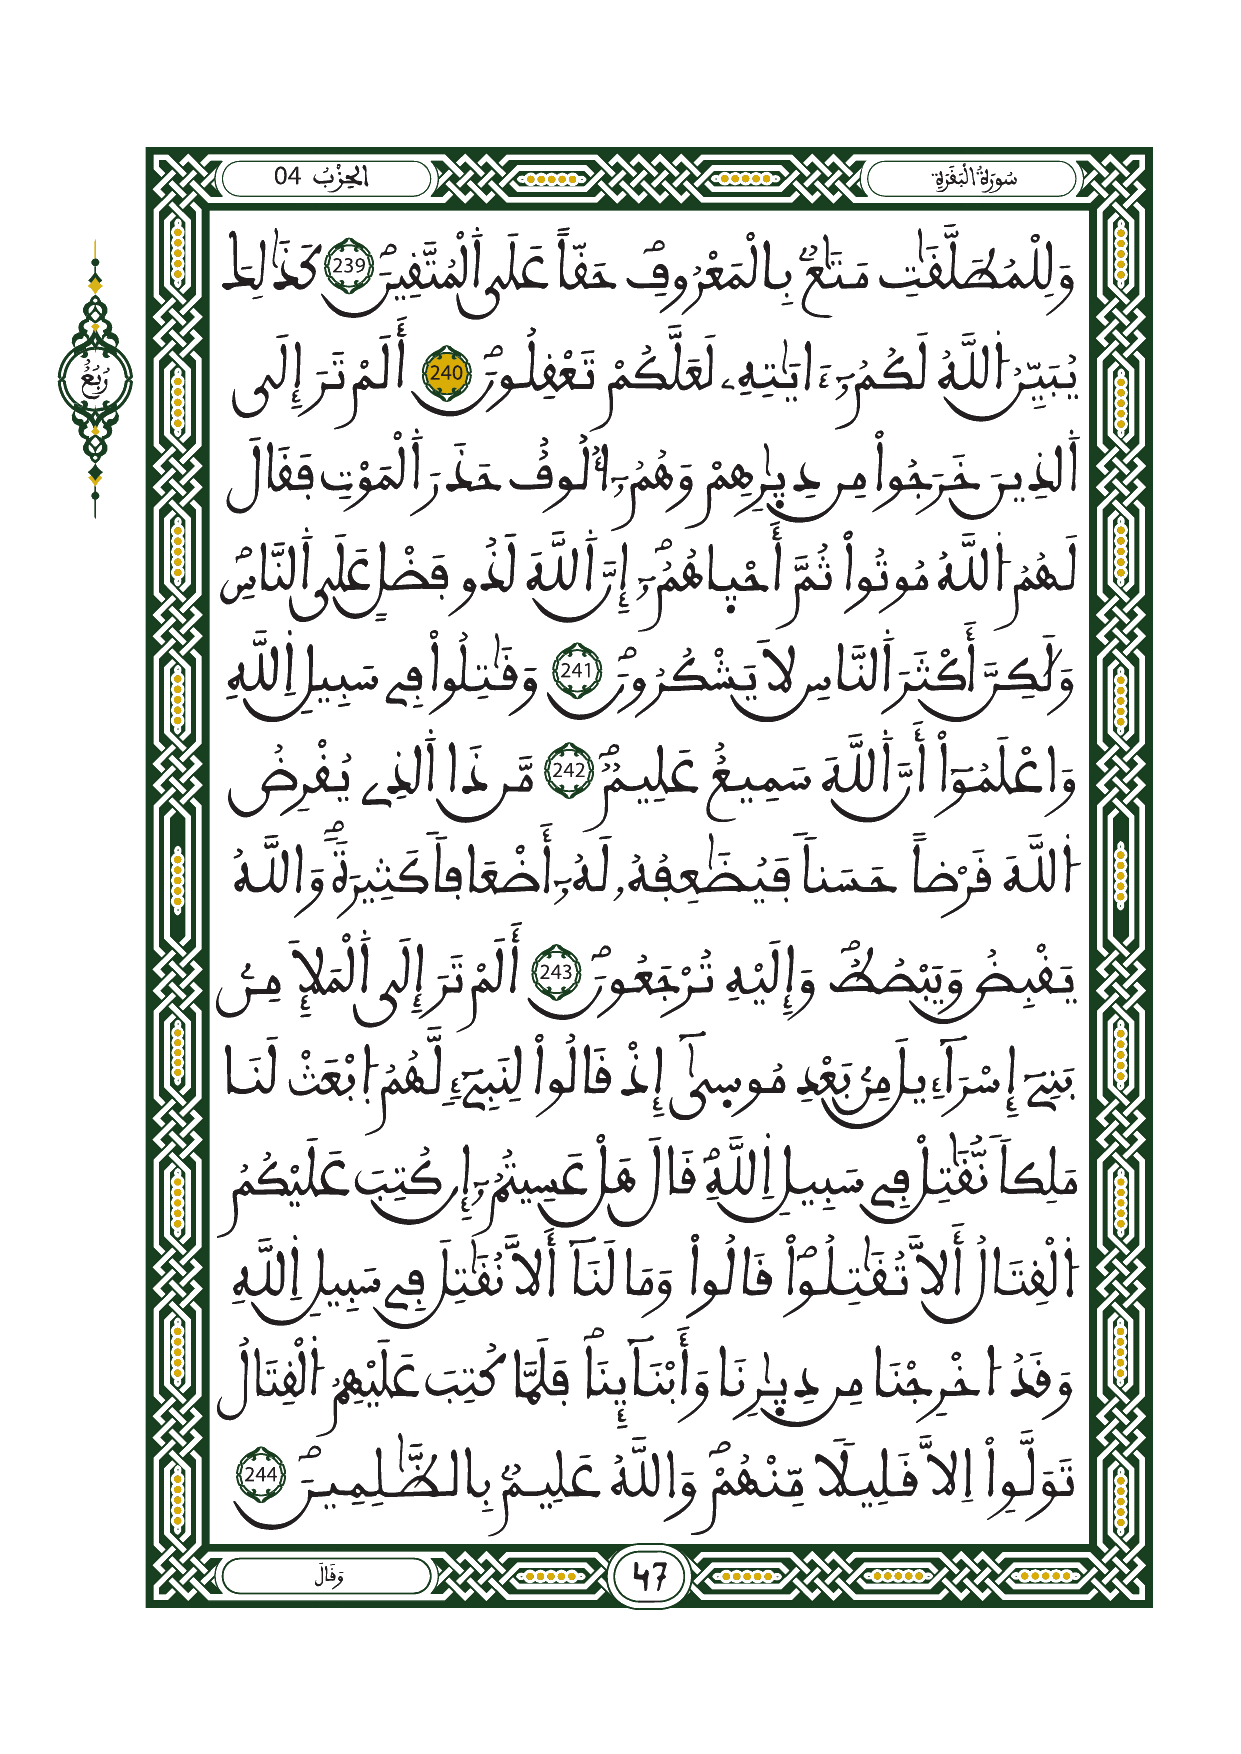 سُورَةُ الْبَقَرَةِ
الحِزْبُ 04
وَلِلْمُطَلَّقَٰتِ مَتَٰعٌۢ بِالْمَعْرُوفِۖ حَقّاً عَلَى اَ۬لْمُتَّقِينَۖ 239 كَذَٰلِكَ
يُبَيِّنُ اُ۬للَّهُ لَكُمُۥٓ ءَايَٰتِهِۦ لَعَلَّكُمْ تَعْقِلُونَۖ 240 أَلَمْ تَرَ إِلَى
رُبُعُ
اَ۬لذِينَ خَرَجُواْ مِن دِيٰ۪رِهِمْ وَهُمُۥٓ أُلُوفٌ حَذَرَ اَ۬لْمَوْتِ فَقَالَ
لَهُمُ اُ۬للَّهُ مُوتُواْ ثُمَّ أَحْي۪اهُمُۥٓۖ إِنَّ اَ۬للَّهَ لَذُو فَضْلٍ عَلَى اَ۬لنَّاسِۖ
وَلَٰكِنَّ أَكْثَرَ اَ۬لنَّاسِ لَا يَشْكُرُونَۖ 241 وَقَٰتِلُواْ فِے سَبِيلِ اِ۬للَّهِ
وَاعْلَمُوٓاْ أَنَّ اَ۬للَّهَ سَمِيعٌ عَلِيمٌۖ 242 مَّن ذَا اَ۬لذِے يُقْرِضُ
اُ۬للَّهَ قَرْضاً حَسَناً فَيُضَٰعِفُهُۥ لَهُۥٓ أَضْعَافاً كَثِيرَةٗۖ وَاللَّهُ
يَقْبِضُ وَيَبْصُطُۖ وَإِلَيْهِ تُرْجَعُونَۖ 243 أَلَمْ تَرَ إِلَى اَ۬لْمَلَإِ مِنۢ
بَنِےٓ إِسْرَآءِيلَ مِنۢ بَعْدِ مُوس۪ىٰٓ إِذْ قَالُواْ لِنَبِےٓءٖ لَّهُمُ اُ۪بْعَثْ لَنَا
مَلِكاً نُّقَٰتِلْ فِے سَبِيلِ اِ۬للَّهِۖ قَالَ هَلْ عَسِيتُمُۥٓ إِن كُتِبَ عَلَيْكُمُ
اُ۬لْقِتَالُ أَلَّا تُقَٰتِلُواْۖ قَالُواْ وَمَا لَنَآ أَلَّا نُقَٰتِلَ فِے سَبِيلِ اِ۬للَّهِ
وَقَدُ ا۟خْرِجْنَا مِن دِيٰ۪رِنَا وَأَبْنَآئِنَاۖ فَلَمَّا كُتِبَ عَلَيْهِمُ اُ۬لْقِتَالُ
تَوَلَّوِاْ اِلَّا قَلِيلاً مِّنْهُمْۖ وَاللَّهُ عَلِيمٌۢ بِالظَّٰلِمِينَۖ 244
وَقَالَ
47